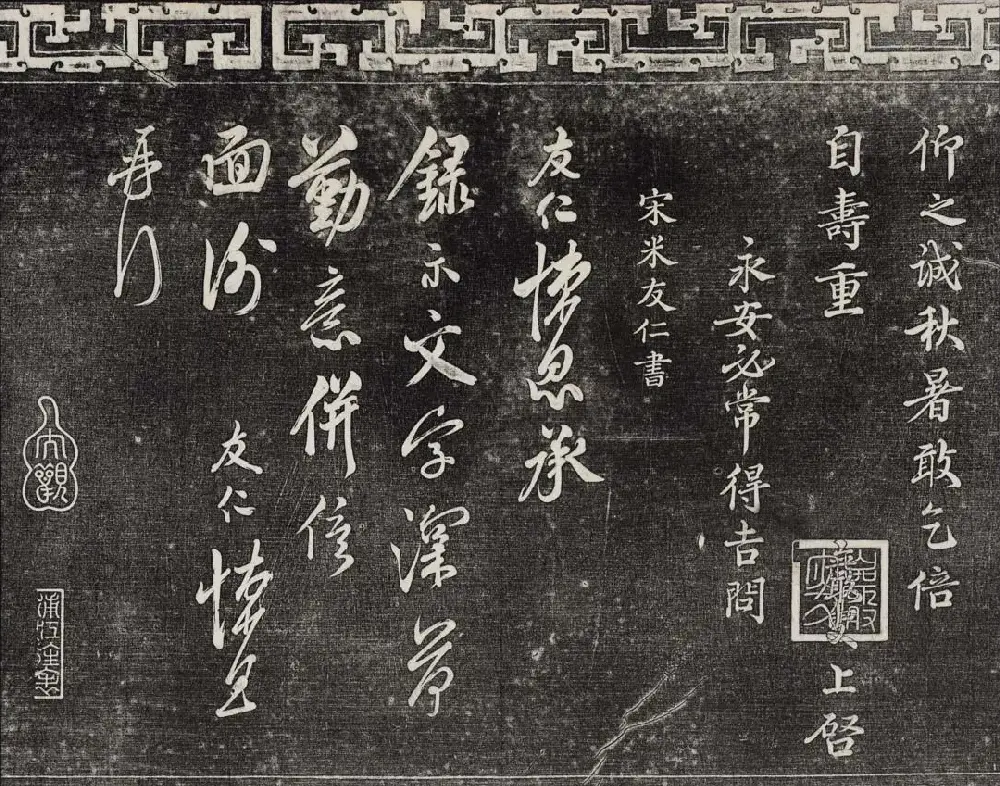 仰之誠秋暑敢乞倍
自壽重
上啓
永安必常得吉問
宋米友仁書
友仁悚息承
録示文字深荷
勤意併俟
面謝 友仁悚息
再拜
大觀